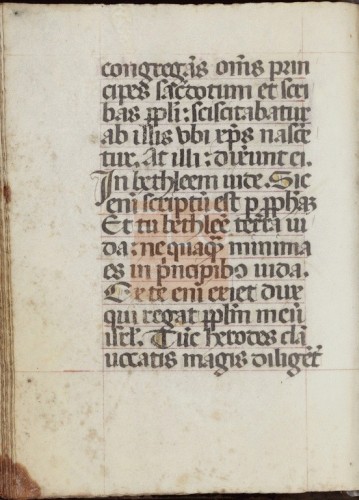 congregãs om̃s prin
cipes sac̃dotum et scri
bas ppli: sciscitabatur
ab illis vbi xp̃s nasce
tur. At illi: dixerunt ei.
In bethleem iude. Sic
enĩ scriptũ est p ppham
Et tu bethleẽ terra iu
da: ne quaq̃ minima
es in p̃ncipibꝰ iuda.
Ex te enĩ exiet dux
qui regat pplm̃ meũ
isrl. Tũc herodes clã
uocatis magis diligẽt